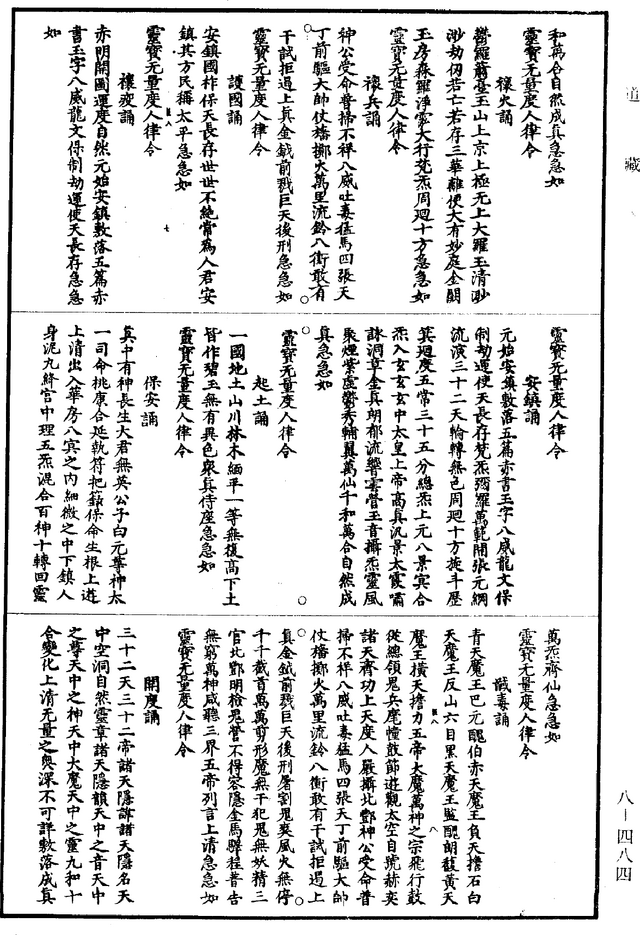 道藏
和萬合自然成真急急如
靈寶无量度人律令
禳火誦
鬱羅蕭臺玉山上京上極无上大羅玉清渺
渺劫仞若亡若存三華離便大有妙庭金闕
玉房森羅淨泓大行梵炁周迴十方急急如
靈寶无量度人律令
禳兵誦
神公受命普掃不祥八威吐毒猛馬四張天
丁前驅大帥仗旛擲火萬里流鈴八衝敢有
干試拒遏上真金鉞前戮巨天後刑急急如
靈寶无量度人律令
護國誦
安鎮國祚保天長存世世不絕常為人君安
鎮其方民稱太平急急如
靈寶无量度人律令
禳疫誦
赤明開圖運度自然元始安鎮敷落五篇赤
書玉字八威龍文保制劫運使天長存急急
如
靈寶无量度人律令
安鎮誦
元始安鎮敷落五篇赤書玉字八威龍文保
制劫運使天長存梵炁彌羅萬範開張元綱
流演三十二天輪轉無色周迴十方旋斗歷
箕迴度五常三十五分總炁上元八景冥合
炁入玄玄玄中太皇上帝高真汎景太霞嘯
詠洞章金真朗郁流響雲營玉音攝炁靈風
聚煙紫虛鬱秀輔翼萬仙千和萬合自然成
真急急如
靈寶无量度人律令
起土誦
一國地土山川林木緬平一等無復高下土
皆作碧玉無有異色衆真侍座急急如
靈寶无量度人律令
保安誦
真中有神長生大君無英公子白元尊神太
一司命桃康合延執符把籙保命生根上遊
上清出入華房八冥之內細微之中下鎮人
身泥丸絳宮中理五炁混合百神十轉迴靈
萬炁齊仙急急如
靈寶无量度人律令
誡毒誦
青天魔王巴元醜伯赤天魔王負天擔石白
天魔王反山六目黑天魔王監醜朗馥黃天
魔王橫天擔力五帝大魔萬神之宗飛行鼓
從總領鬼兵麾幢鼓節遊觀太空自號赫奕
諸天齊功上天度人嚴攝北酆神公受命普
掃不祥八威吐毒猛馬四張天丁前驅大帥
仗旛擲火萬里流鈴八衝敢有干試拒遏上
真金鉞前戮巨天後刑屠割鬼爽風火無停
千千截首萬萬剪形魔無干犯鬼無妖精三
官北酆明檢鬼營不得容隱金馬驛程普告
無窮萬神咸聽三界五帝列言上清急急如
靈寶无量度人律令
開度誦
三十二天三十二帝諸天隱諱諸天隱名天
中空洞自然靈章諸天隱韻天中之音天中
之尊天中之神天中大魔天中之靈九和十
合變化上清无量之奧深不可詳敷落成真
八－四八四